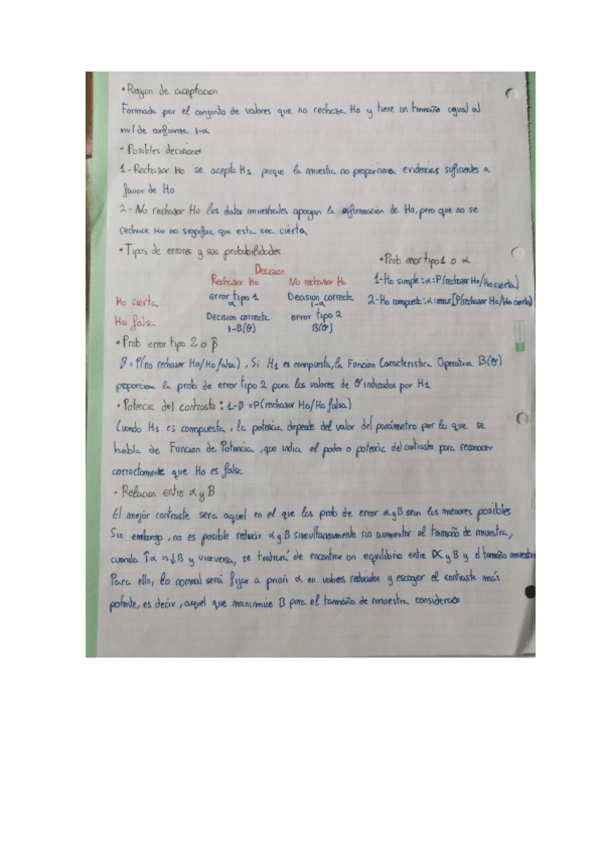 • Region de aceptacion
Formada por el conjunto de valores que no rechaza Ho y tiene un tamaño igual al
nivel de confianza 1-α
• Posibles decisiones
1- Rechazar Ho se acepta H1 porque la muestra no proporciona evidencias suficientes a
favor de Ho
2- No rechazar Ho los datos muestrales apoyan la afirmación de Ho, pero que no se
rechace Ho no significa que esta sea cierta
• Tipos de errores y sus probabilidades
Decision
Rechazar Ho No rechazar Ho
Ho cierta error tipo 1 α Decision correcta 1-α
Ho falsa Decision correcta 1-B(θ) error tipo 2 B(θ)
• Prob error tipo 1 o α
1- Ho simple: α: P(rechazar Ho/Ho cierta)
2- Ho compuesta: α= max[P(rechazar Ho/Ho cierta)
• Prob error tipo 2 o β
β = P(no rechazar Ho/Ho falsa). Si H1 es compuesta, la Funcion Caracteristica Operativa B(θ)
proporciona la prob de error tipo 2 para los valores de θ indicados por H1
• Potencia del contraste: 1-B = P(rechazar Ho/Ho falsa)
Cuando H1 es compuesta, la potencia depende del valor del parámetro por lo que se
habla de Funcion de Potencia, que indica el poder o potencia del contraste para reconocer
correctamente que Ho es falsa
- Relacion entre α y B
El mejor contraste sera aquel en el que las prob de error α y B sean las menores posibles
Sin embargo, no es posible reducir α y B simultaneamente sin aumentar el tamaño de muestra,
cuando ↑α ⇒ ↓B y viceversa, se tratará de encontrar un equilibrio entre α y B y el tamaño muestra
Para ello, lo normal será fijar a priori α en valores reducidos y escoger el contraste más
potente, es decir, aquel que minimice B para el tamaño de muestra considerado